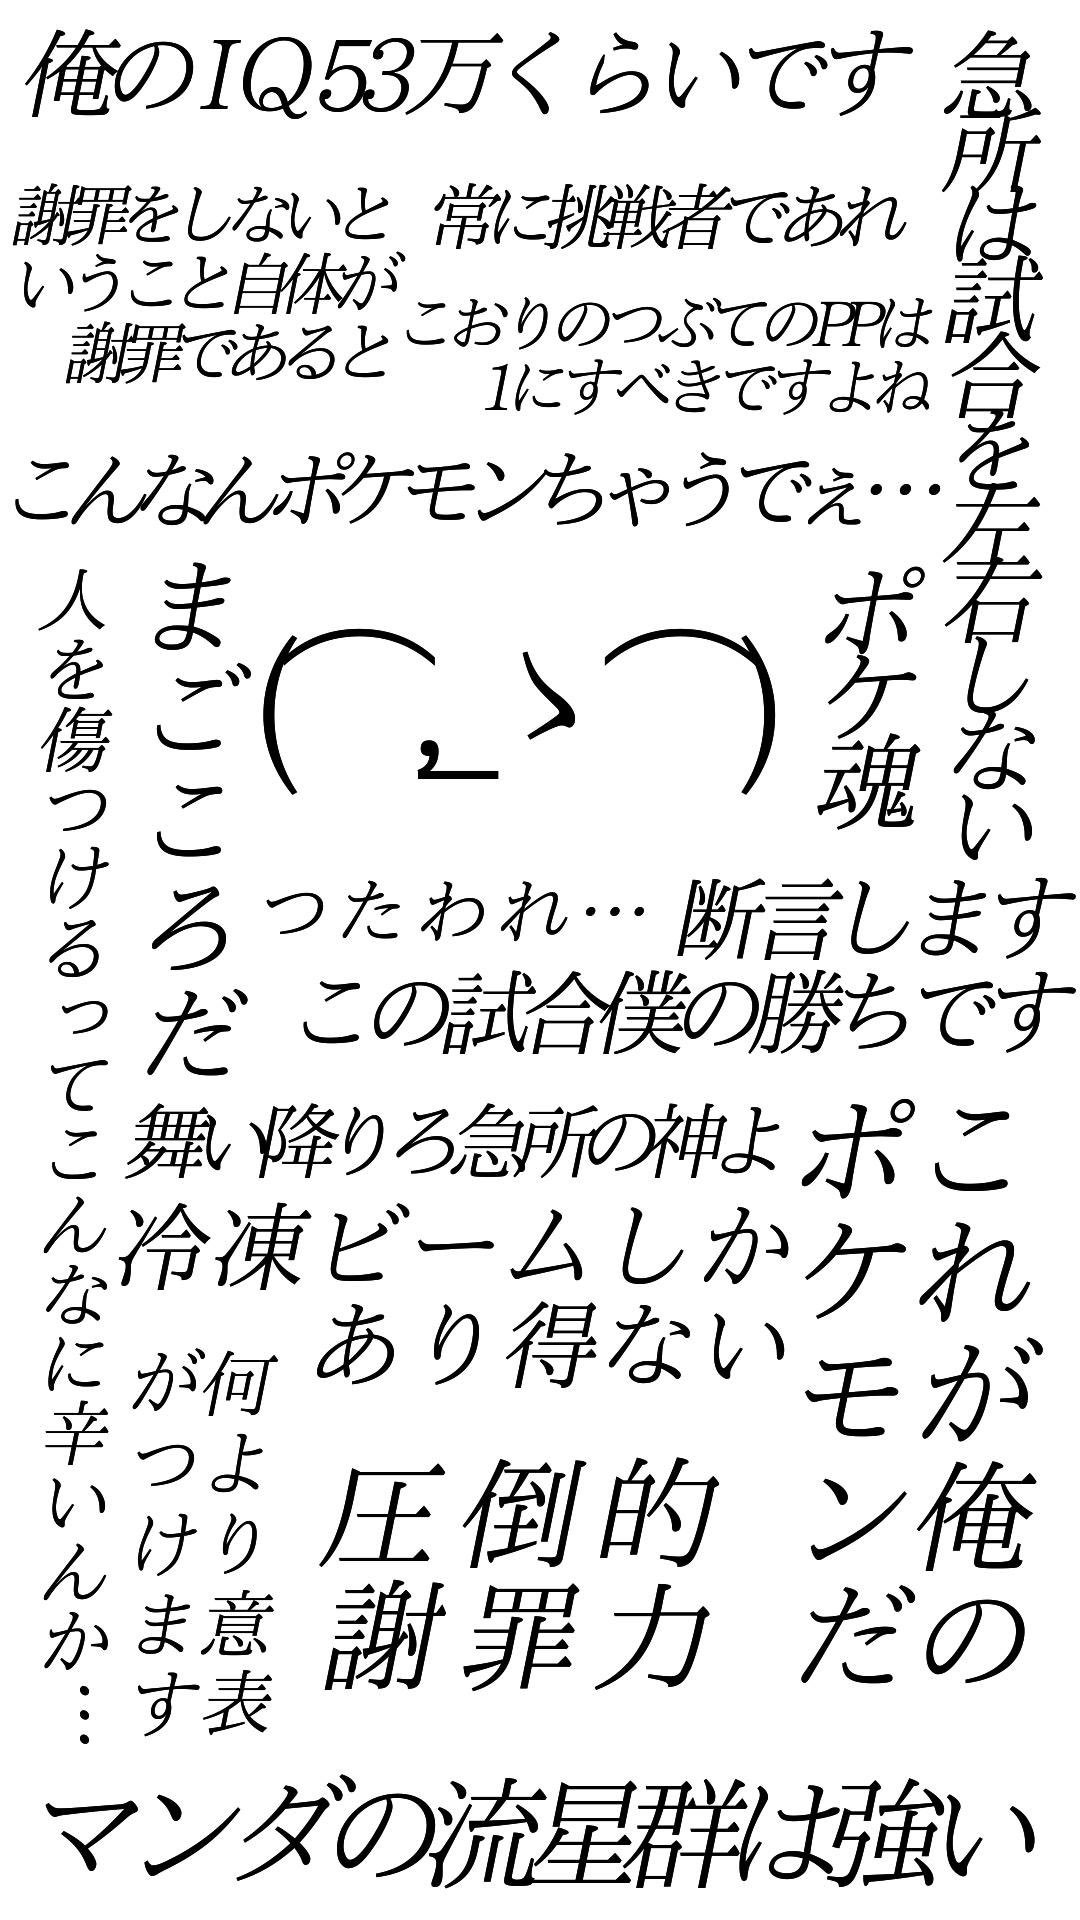 俺のIQ53万くらいです
急所は試合を左右しない
謝罪をしないと
いうこと自体が
謝罪であると
常に挑戦者であれ
こおりのつぶてのPPは
1にすべきですよね
こんなんポケモンちゃうでぇ…
人を傷つけるってこんなに辛いんか…
まごころだ
(⌒,_ゝ⌒)
ポケ魂
つたわれ…
断言します
この試合僕の勝ちです
舞い降りろ急所の神よ
冷凍ビームしか
あり得ない
これが俺の
ポケモンだ
何より意表
がつけます
圧倒的
謝罪力
マンダの流星群は強い